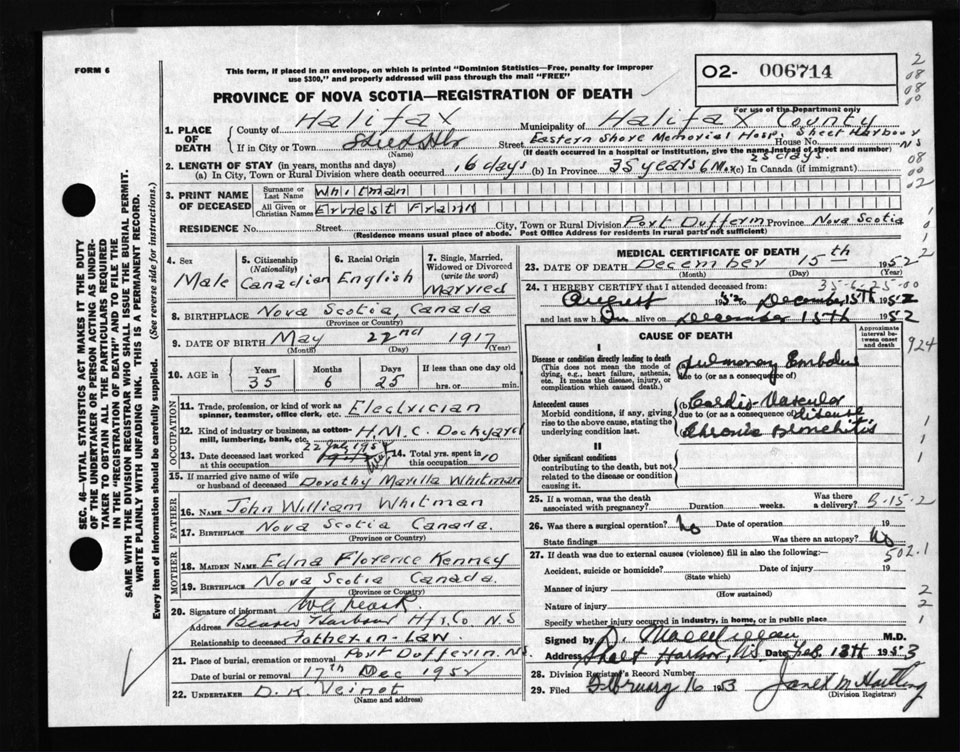 FORM 6
This form, if placed in an envelope, on which is printed "Dominion Statistics—Free, penalty for improper
use $300," and properly addressed will pass through the mail "FREE"
O2- 006714
PROVINCE OF NOVA SCOTIA—REGISTRATION OF DEATH
For use of the Department only
1. PLACE OF DEATH
County of Halifax Municipality of Halifax County
If in City or Town Street Eastern Shore Memorial Hosp. Sheet Harbour House No. NS
(Name) (If death occurred in a hospital or institution, give the name instead of street and number)
2. LENGTH OF STAY (in years, months and days) 25 days.
(a) In City, Town or Rural Division where death occurred 16 days (b) In Province 35 years 6 Mos (c) In Canada (if immigrant)
3. PRINT NAME OF DECEASED
Surname or Last Name Whitman
All Given or Christian Names Ernest Frank
RESIDENCE No. Street City, Town or Rural Division Port Dufferin Province Nova Scotia
(Residence means usual place of abode. Post Office Address for residents in rural parts not sufficient)
4. Sex Male
5. Citizenship (Nationality) Canadian
6. Racial Origin English
7. Single, Married, Widowed or Divorced (write the word) Married
8. BIRTHPLACE Nova Scotia, Canada
(Province or Country)
9. DATE OF BIRTH May 22nd 1917
(Month) (Day) (Year)
10. AGE in Years 35 Months 6 Days 25 If less than one day old hrs. or min.
OCCUPATION
11. Trade, profession, or kind of work as spinner, teamster, office clerk, etc. Electrician
12. Kind of industry or business, as cotton-mill, lumbering, bank, etc. H.M.C. Dockyard
13. Date deceased last worked at this occupation
14. Total yrs. spent in this occupation 10
15. If married give name of wife or husband of deceased Dorothy Marilla Whitman
FATHER
16. NAME John William Whitman
17. BIRTHPLACE Nova Scotia Canada.
(Province or Country)
MOTHER
18. MAIDEN NAME Edna Florence Kenney
19. BIRTHPLACE Nova Scotia Canada.
(Province or Country)
20. Signature of informant
Address Beaver Harbour Hfx.Co N.S
Relationship to deceased Father-in-Law
21. Place of burial, cremation or removal Port Dufferin. NS
Date of burial or removal 17th Dec 1952
22. UNDERTAKER D. K. Veinot
(Name and address)
MEDICAL CERTIFICATE OF DEATH
23. DATE OF DEATH December 15th 1952
(Month) (Day) (Year)
35-6-25-00
24. I HEREBY CERTIFY that I attended deceased from:
August 1952 to December 15th 1952
and last saw h im alive on December 15th 1952
CAUSE OF DEATH
Approximate interval between onset and death
924
I
Disease or condition directly leading to death
(This does not mean the mode of dying, e.g., heart failure, asthenia, etc. It means the disease, injury, or complication which caused death.)
Pulmonary Embolus
due to (or as a consequence of)
Antecedent causes
Morbid conditions, if any, giving rise to the above cause, stating the underlying condition last.
Cardio-Vascular
due to (or as a consequence of) disease
Chronic Bronchitis
II
Other significant conditions
contributing to the death, but not related to the disease or condition causing it.
25. If a woman, was the death associated with pregnancy? Duration weeks. Was there a delivery?
B-15-2
26. Was there a surgical operation? No Date of operation 19
State findings Was there an autopsy? No
502.1
27. If death was due to external causes (violence) fill in also the following:—
Accident, suicide or homicide? Date of injury 19
(State which)
Manner of injury
(How sustained)
Nature of injury
Specify whether injury occurred in industry, in home, or in public place
Signed by M.D.
Address Sheet Harbor, NS Date Feb. 13th 1953
28. Division Registrar's Record Number
29. Filed February 16 1953
(Division Registrar)
SEC. 46—VITAL STATISTICS ACT MAKES IT THE DUTY
OF THE UNDERTAKER OR PERSON ACTING AS UNDER-
TAKER TO OBTAIN ALL THE PARTICULARS REQUIRED
IN THE "REGISTRATION OF DEATH" AND TO FILE THE
SAME WITH THE DIVISION REGISTRAR WHO SHALL ISSUE THE BURIAL PERMIT.
WRITE PLAINLY WITH UNFADING INK. THIS IS A PERMANENT RECORD.
Every item of information should be carefully supplied. (See reverse side for instructions.)